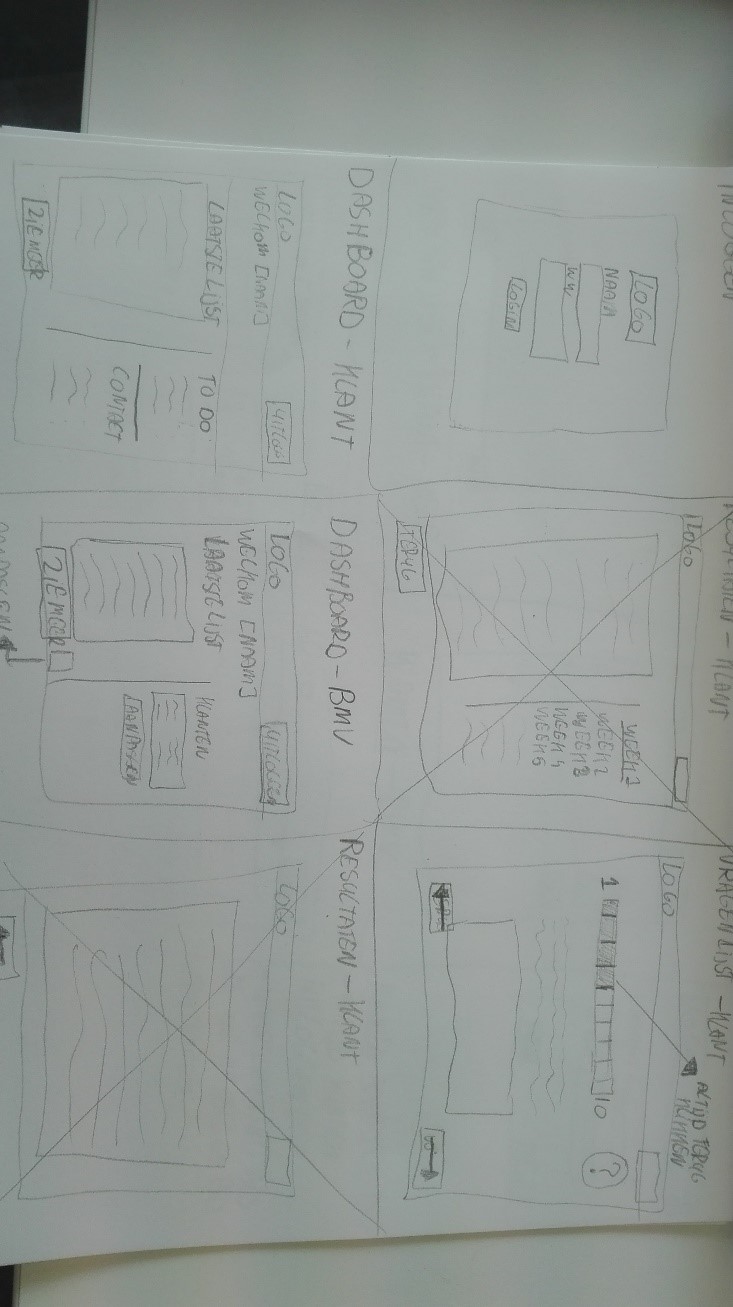 INLOGGEN
LOGO
NAAM
WW
LOGIN
RESULTATEN - KLANT
LOGO
WEEK 1
WEEK 2
WEEK 3
WEEK 4
WEEK 5
TERUG
VRAGENLIJST - KLANT
ALTIJD TERUG
KUNNEN
LOGO
1
10
?
DASHBOARD - KLANT
LOGO
UITLOGG
WELKOM [NAAM]
LAATSTE LIJST
TO DO
CONTACT
ZIE MEER
DASHBOARD - BMV
LOGO
UITLOGGEN
WELKOM [NAAM]
LAATSTE LIJST
KLANTEN
AANPASSEN
ZIE MEER
AANPASSEN
RESULTATEN - KLANT
LOGO